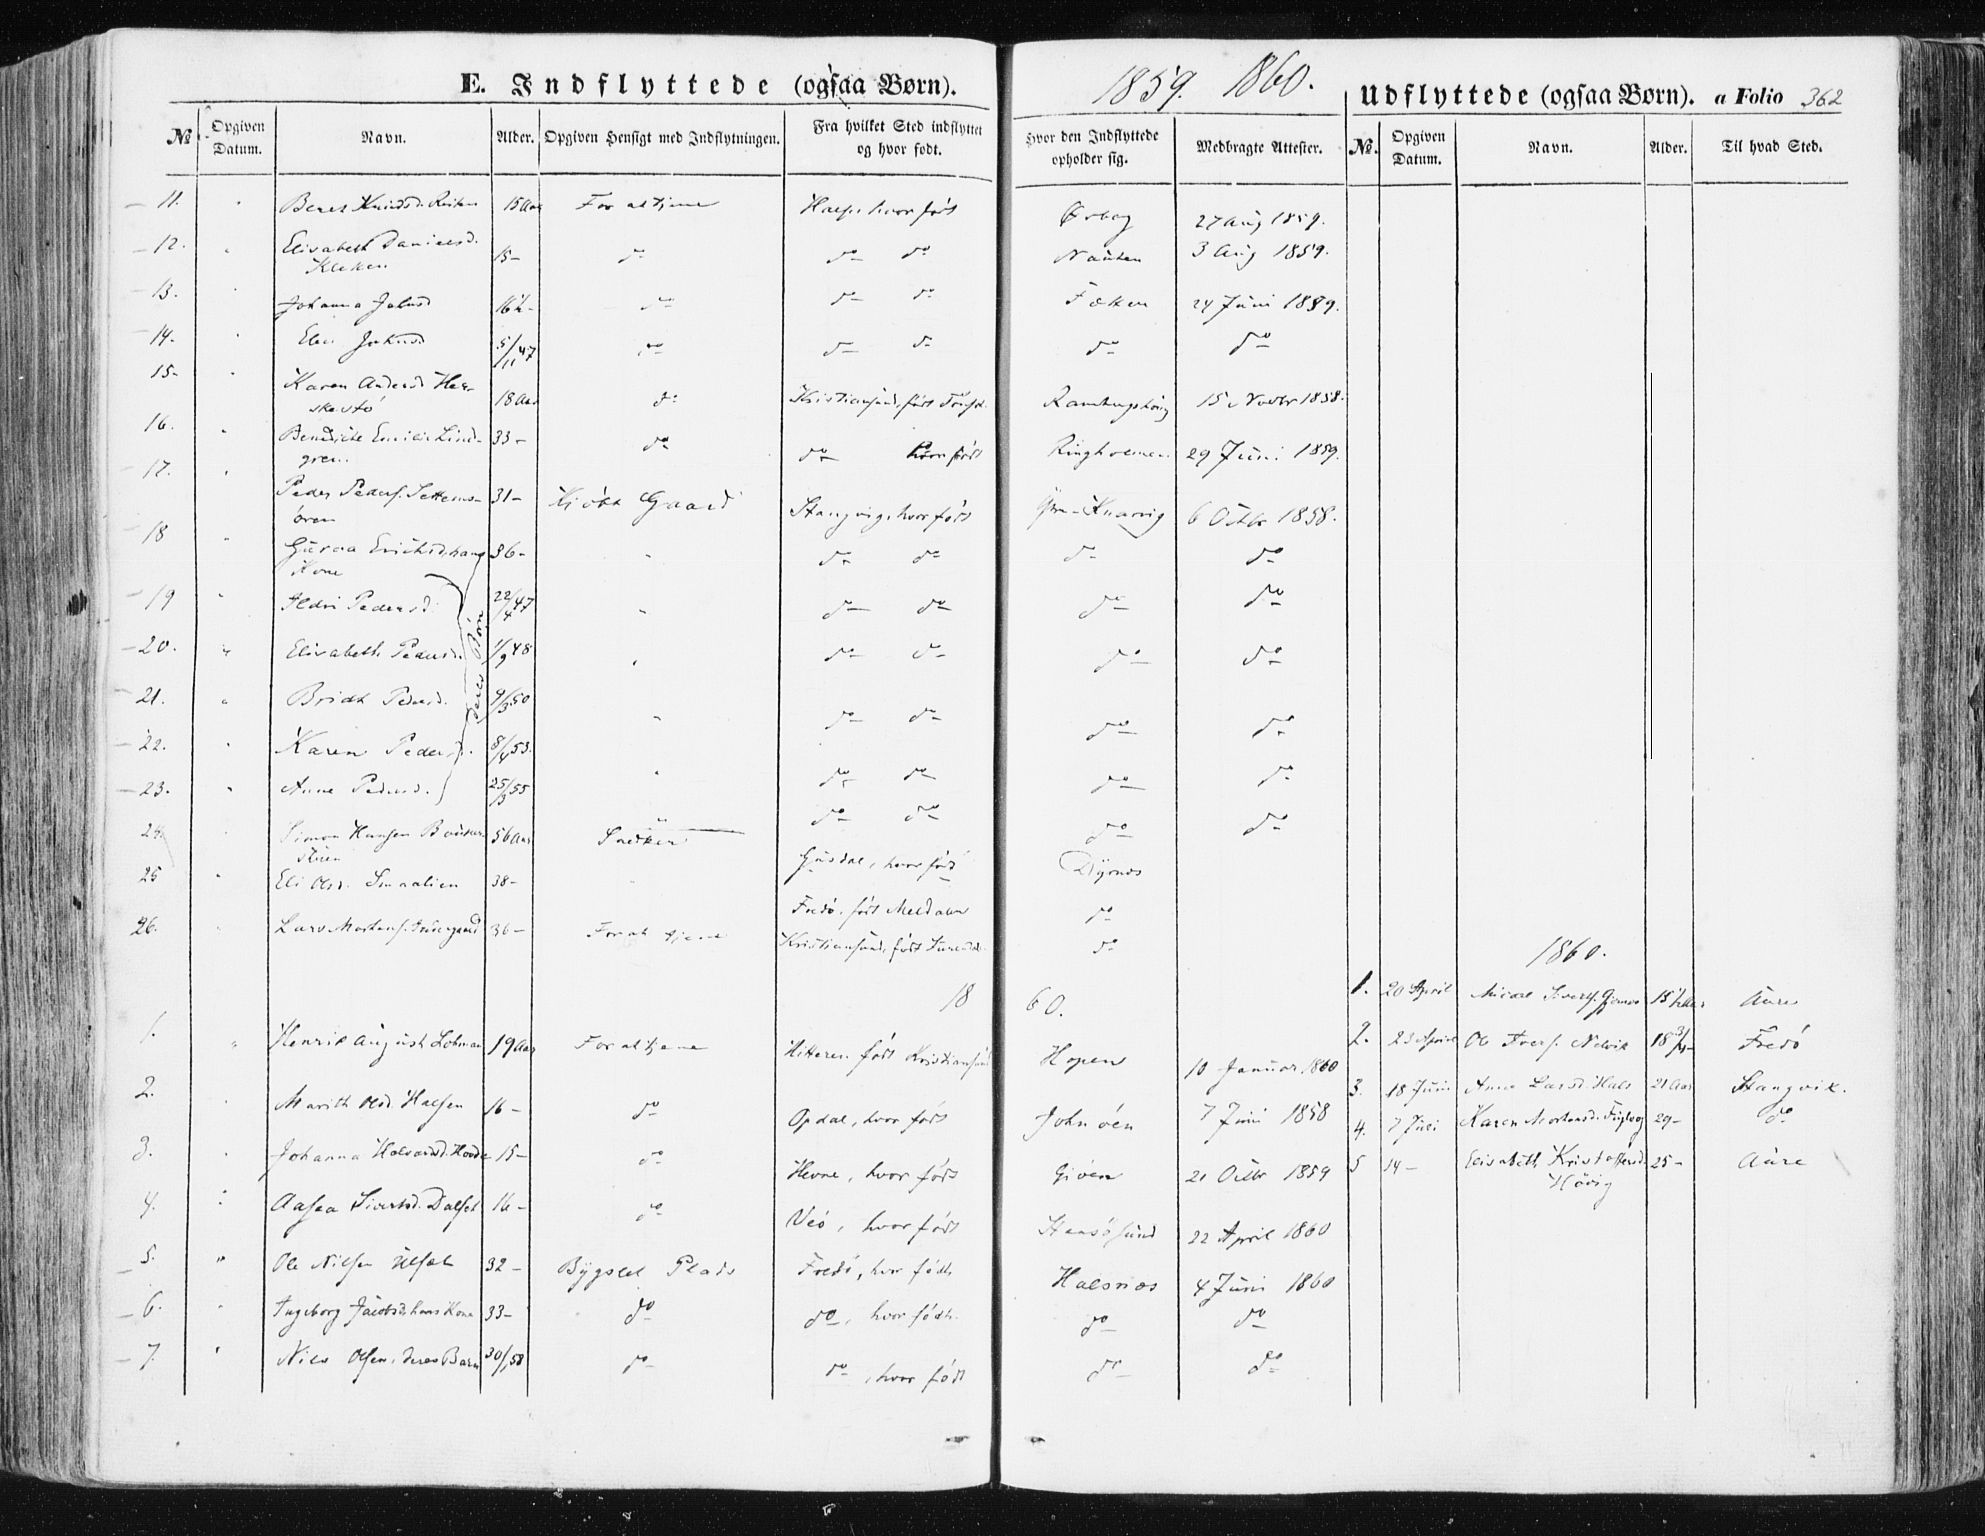 E. Indflyttede (ogsaa Børn).
1859. 1860.
Udflyttede (ogsaa Børn). a Folio 362
№ Opgiven Datum. Navn. Alder. Opgiven Hensigt med Indflytningen. Fra hvilket Sted indflyttet og hvor født. Hvor den Indflyttede opholder sig. Medbragte Attester.
№. Opgiven Datum. Navn. Alder. Til hvad Sted.
11. " Knudsd. 15 Aar For at tjene Halse, hvor født 27 Aug 1859.
12. " Elisabeth Danielsd. 15 - do do do 3 Aug 1859.
13. " Johanna Johnsd 16½ - do do do 24 Juni 1859.
14. " Johnsd 5/11 47 do do do do do
15. " Karen Andersd. 18 Aar do Kristiansund, født 15 Novbr 1858.
16. " Benedicte Emilie Lind-
gren. 33 - do do hvor født Ringholmen 29 Juni 1859.
17. " Peder Peders. Settems-
øren 31 - Kjøbt Gaard Stangvig, hvor født 6 Octbr 1858.
18 " Erichsd, hans
Kone 36 - " do do do do
19 " Ildri Pedersd. 22/4 47 " do do do do
deres Børn
20. " Elisabeth Pedersd. 1/9 48 " do do do do
21. " Bridt Pedersd. 9/3 50 " do do do do
22. " Karen Pedersd. 8/4 53. " do do do do
23. " Anne Pedersd. 25/3 55 " do do do do
24 " Simon Hansen 56 Aar Snedker hvor født Dyrnes
25 " Eli Olsd. Smaalien 38 - " Fredø, født Meldalen do
26. " Lars Mortens. 36 - For at tjene Kristiansund, født do
1860.
1. " Henrik August Lohman 19 Aar For at tjene Hitteren født Kristiansund Hopen 10 Januar 1860
2. " Marith Olsd. Halsen 16 - do Opdal, hvor født Johnøen 7 Juni 1858
3. " Johanna Halvorsd. Hovde 15 - do Hevne, hvor født Giøen 21 Octbr 1859
4. " Aasea Sivertsd. Dalset 16 - do Veø, hvor født 22 April 1860
5. " Ole Nilsen Ulset 32 - Bygslet Plads Fredø, hvor født Halsnes 4 Juni 1860
6. " Ingeborg Jacobsd. hans Kone 33 - do do, hvor født. do do
7. " Nils Olsen, deres Barn 30/1 58 do do, hvor født do do
1860.
1. 20 April Sivers. 15½ Aar Aure
2. 23 April Ole Ivers. Nelvik 18¾ - Fredø
3. 18 Juni Anne Larsd. Hals 21 Aar Stangvik.
4. 7 Juli Karen Mortensd. Fuglvog 29 - do
5 14 - Elisabeth Kristoffersd. 25 - Aure
Høvig